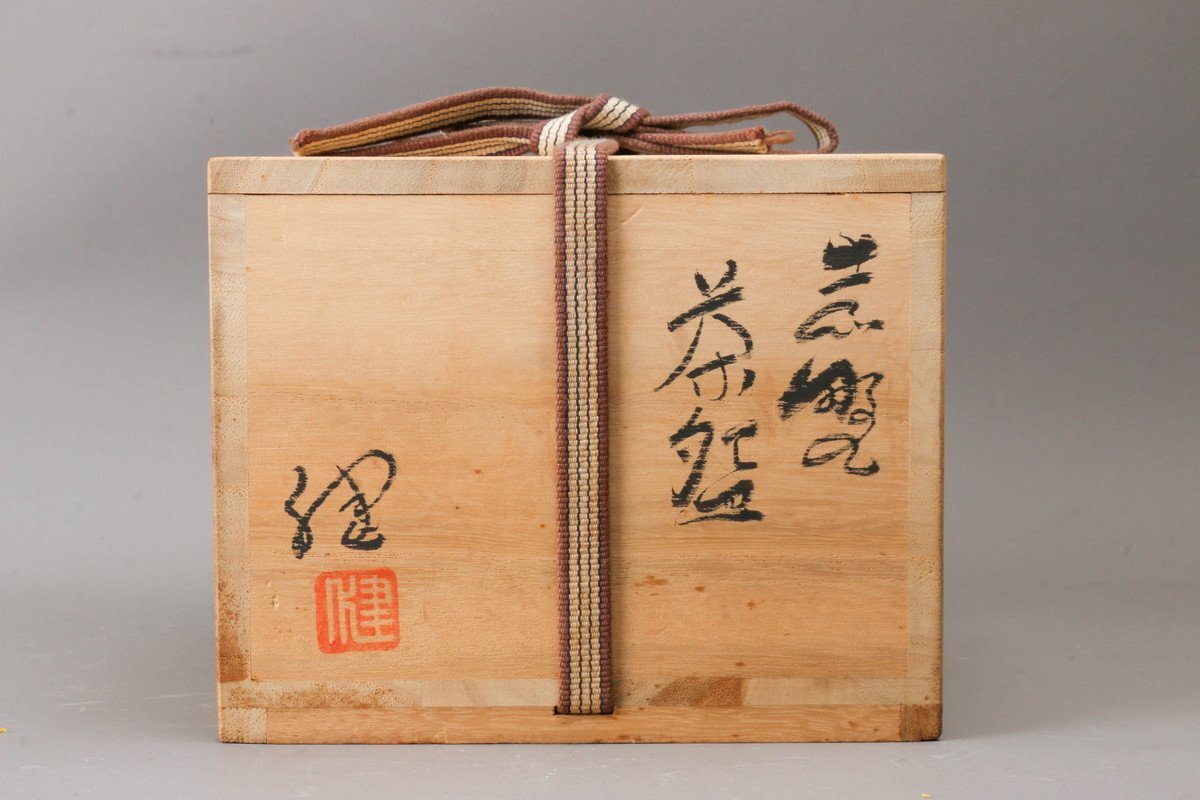 志野
茶盌
健
健